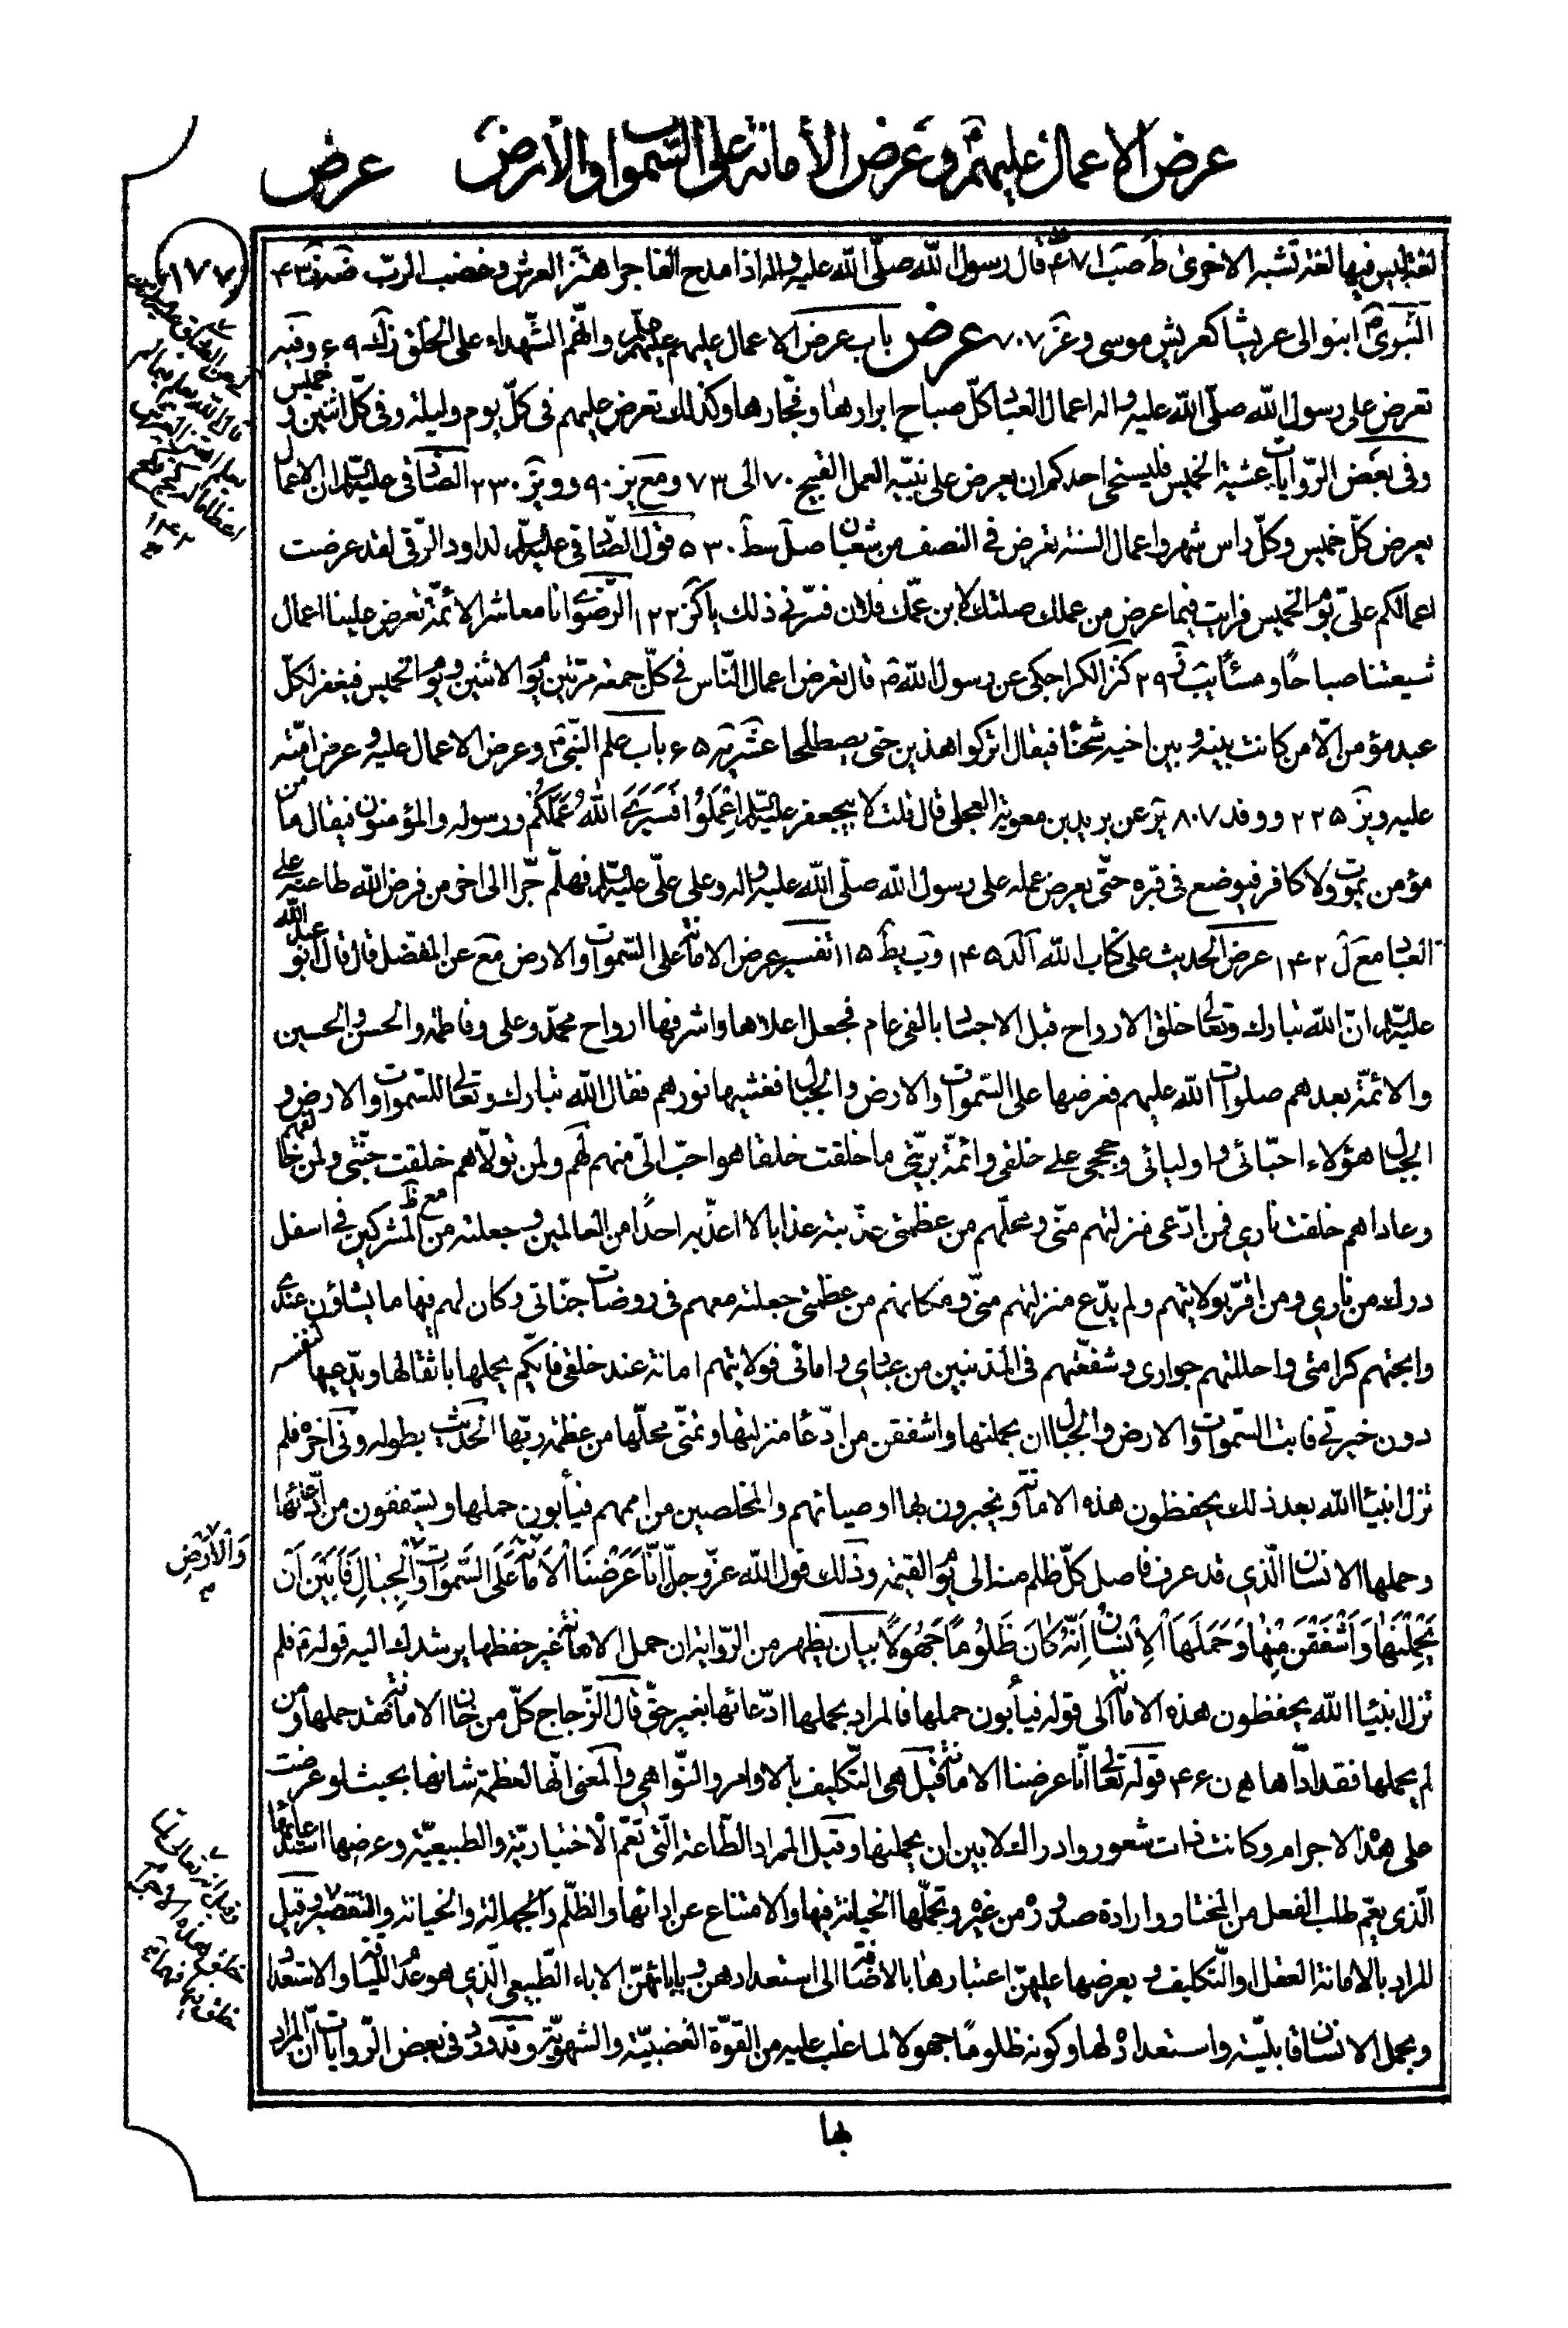 عرض الاعمال عليهم و عرض الأمانة على السّموات والأرض عرض
١٧٧
لغة ليس فيها لغة تشبه الاخرى ط صب ٤٧١ قال رسول اللّه صلّى اللّه عليه واله اذا مدح الفاجر اهتز العرش وغضب الربّ ضه ٤٣
النّبويّ ابنو الى عريشا كعريش موسى وعز ٧٠٧ عرض باب عرض الاعمال عليهم عليهم وانّهم الشّهداء على الخلق زك ٦٩ وفيه
تعرض على رسول اللّه صلّى اللّه عليه واله اعمال العباد كلّ صباح ابرارها وفجّارها وكذلك تعرض عليهم فى كلّ يوم وليلة وفى كلّ اثنين و خميس
وفى بعض الرّوايات عشيّة الخميس فليستحى احدكم ان يعرض على نبيّه العمل القبيح ٧٠ الى ٧٣ ومع يز ٩٠ وو يز ٢٣٠ الصّادقى عليه السّلم ان الاعمال
يعرض كلّ خميس وكلّ راس شهر واعمال السنة تعرض فى النصف من شعبان صل سط ٥٣٠ قول الصّادق عليه السّلم لداود الرّقى لقد عرضت
اعمالكم علىّ يوم الخميس فرايت فيما عرض من عملك صلتك لابن عمّك فلان فسرّنى ذلك يا كز ١٢٢ الرّضوى انا معاشر الائمّة تعرض علينا اعمال
شيعتنا صباحًا ومساءً يب نى ٢٩ كنز الكراجكى عن رسول اللّه قال تعرض اعمال النّاس فى كلّ جمعة مرّتين يوم الاثنين ويوم الخميس فيغفر لكلّ
عبد مؤمن الّا من كانت بينه وبين اخيه شحناء فيقال اتركوا هذين حتى يصطلحا عشر يه ٦٥ باب علم النّبى وعرض الاعمال عليه و عرض امّته
عليه ويز ٢٢٥ و وفد ٨٠٧ ير عن بريد بن معوية العجلى قال قلت لابيجعفر عليه السّلم اعْمَلُوا فَسَيَرَى اللهُ عَمَلَكُمْ ورسوله والمؤمنون فيقال ما من
مؤمن يموت ولا كافر فيوضع فى قبره حتّى يعرض عمله على رسول اللّه صلّى اللّه عليه واله وعلى علىّ عليه السّلم فهلّم جرّا الى اخر من فرض اللّه طاعته على
العباد مع ل ١٤٢ عرض الحديث على كتاب اللّه ا لد ١٤٥ وب يط ١١٥ تفسير عرض الامانة على السّموات والارض مع عن المفضّل قال قال ابو عبد اللّه
عليه السّلم انّ اللّه تبارك وتعالى خلق الارواح قبل الاجساد بالفى عام فجعل اعلاها واشرفها ارواح محمّد وعلى وفاطمة والحسن والحسين
والائمّة بعدهم صلوات اللّه عليهم فعرضها على السّموات والارض والجبال فغشيها نورهم فقال اللّه تبارك وتعالى للسّموات والارض و
الجبال هؤلاء احبّائى واوليائى وحججى على خلقى وائمّة بريّتى ما خلقت خلقا هو احبّ الىّ منهم لهم ولمن تولّاهم خلقت جنّتى ولمن خالفهم
وعاداهم خلقت نارى فمن ادّعى منزلتهم منّى ومحلّهم من عظمتى عذّبته عذابا لا اعذّبه احدًا من العالمين وجعلته مع المشركين فى اسفل
درك من نارى ومن اقرّ بولايتهم ولم يدّع منزلتهم منّى ومكانهم من عظمتى جعلته معهم فى روضات جنّاتى وكان لهم فيها ما يشاؤن عندى
وابحتهم كرامتى واحللتهم جوارى وشفّعتهم فى المذنبين من عبادى وامائى فولايتهم امانة عند خلقى فايّكم يحملها باثقالها ويدّعيها لنفسه
دون خيرتى فابت السّموات والارض والجبال ان يحملنها واشفقن من ادّعاء منزلتها وتمنّى محلّها من عظمة ربّها الحديث بطوله وفى اخره فلم
تزل انبياء اللّه بعد ذلك يحفظون هذه الامانة ويخبرون بها اوصيائهم والمخلصين من اممهم فيأبون حملها ويشفقون من ادّعائها
وحملها الانسان الّذى قد عرف فاصل كلّ ظلم منه الى يوم القيمة وذلك قول اللّه عزّ وجلّ انّا عَرَضْنَا الْاَمَانَةَ عَلَى السَّمٰوَاتِ وَالْجِبٰالِ فَاَبَيْنَ اَنْ
يَحْمِلْنَهٰا وَاَشْفَقْنَ مِنْهٰا وَحَمَلَهَا الْاِنْسَانُ اِنَّهُ كَانَ ظَلُومًا جَهُولًا بيان يظهر من الرّواية ان حمل الامانة غير حفظها يرشدك اليه قوله فلم
تزل انبياء اللّه يحفظون هذه الامانة الى قوله فيأبون حملها فالمراد بحملها ادّعائها بغير حقّ قال الزّجاج كلّ من خان الامانة فقد حملها ومن
لم يحملها فقد ادّاها هن ٤٦ قوله تعالى انّا عرضنا الامانة قيل هى التّكليف بالاوامر والنّواهى والمعنى انّها لعظمة شانها بحيث لو عرضت
على هذه الاجرام وكانت ذات شعور وادراك لابين ان يحملنها وقيل المراد الطّاعة الّتى تعمّ الاختياريّة والطبيعيّة وعرضها استدعائها
الّذى يعمّ طلب الفعل من المختار وارادة صدوره من غيره وتحمّلها الخيانة فيها والامتناع عن ادائها والظّلم والجهالة والخيانة والتقصير وقيل
المراد بالامانة العقل او التّكليف و يعرضها عليهنّ اعتبارها بالاضافة الى استعدادهن وبابائهنّ الاباء الطّبيعى الّذى هو عدم اللّياقة والاستعداد
وبحمل الانسان قابليّته واستعداده لها وكونه ظلومًا جهولا لما غلب عليه من القوّة الغضبيّة والشهويّة وقد ورد فى بعض الرّوايات انّ المراد
وَالْأَرْضِ
بها